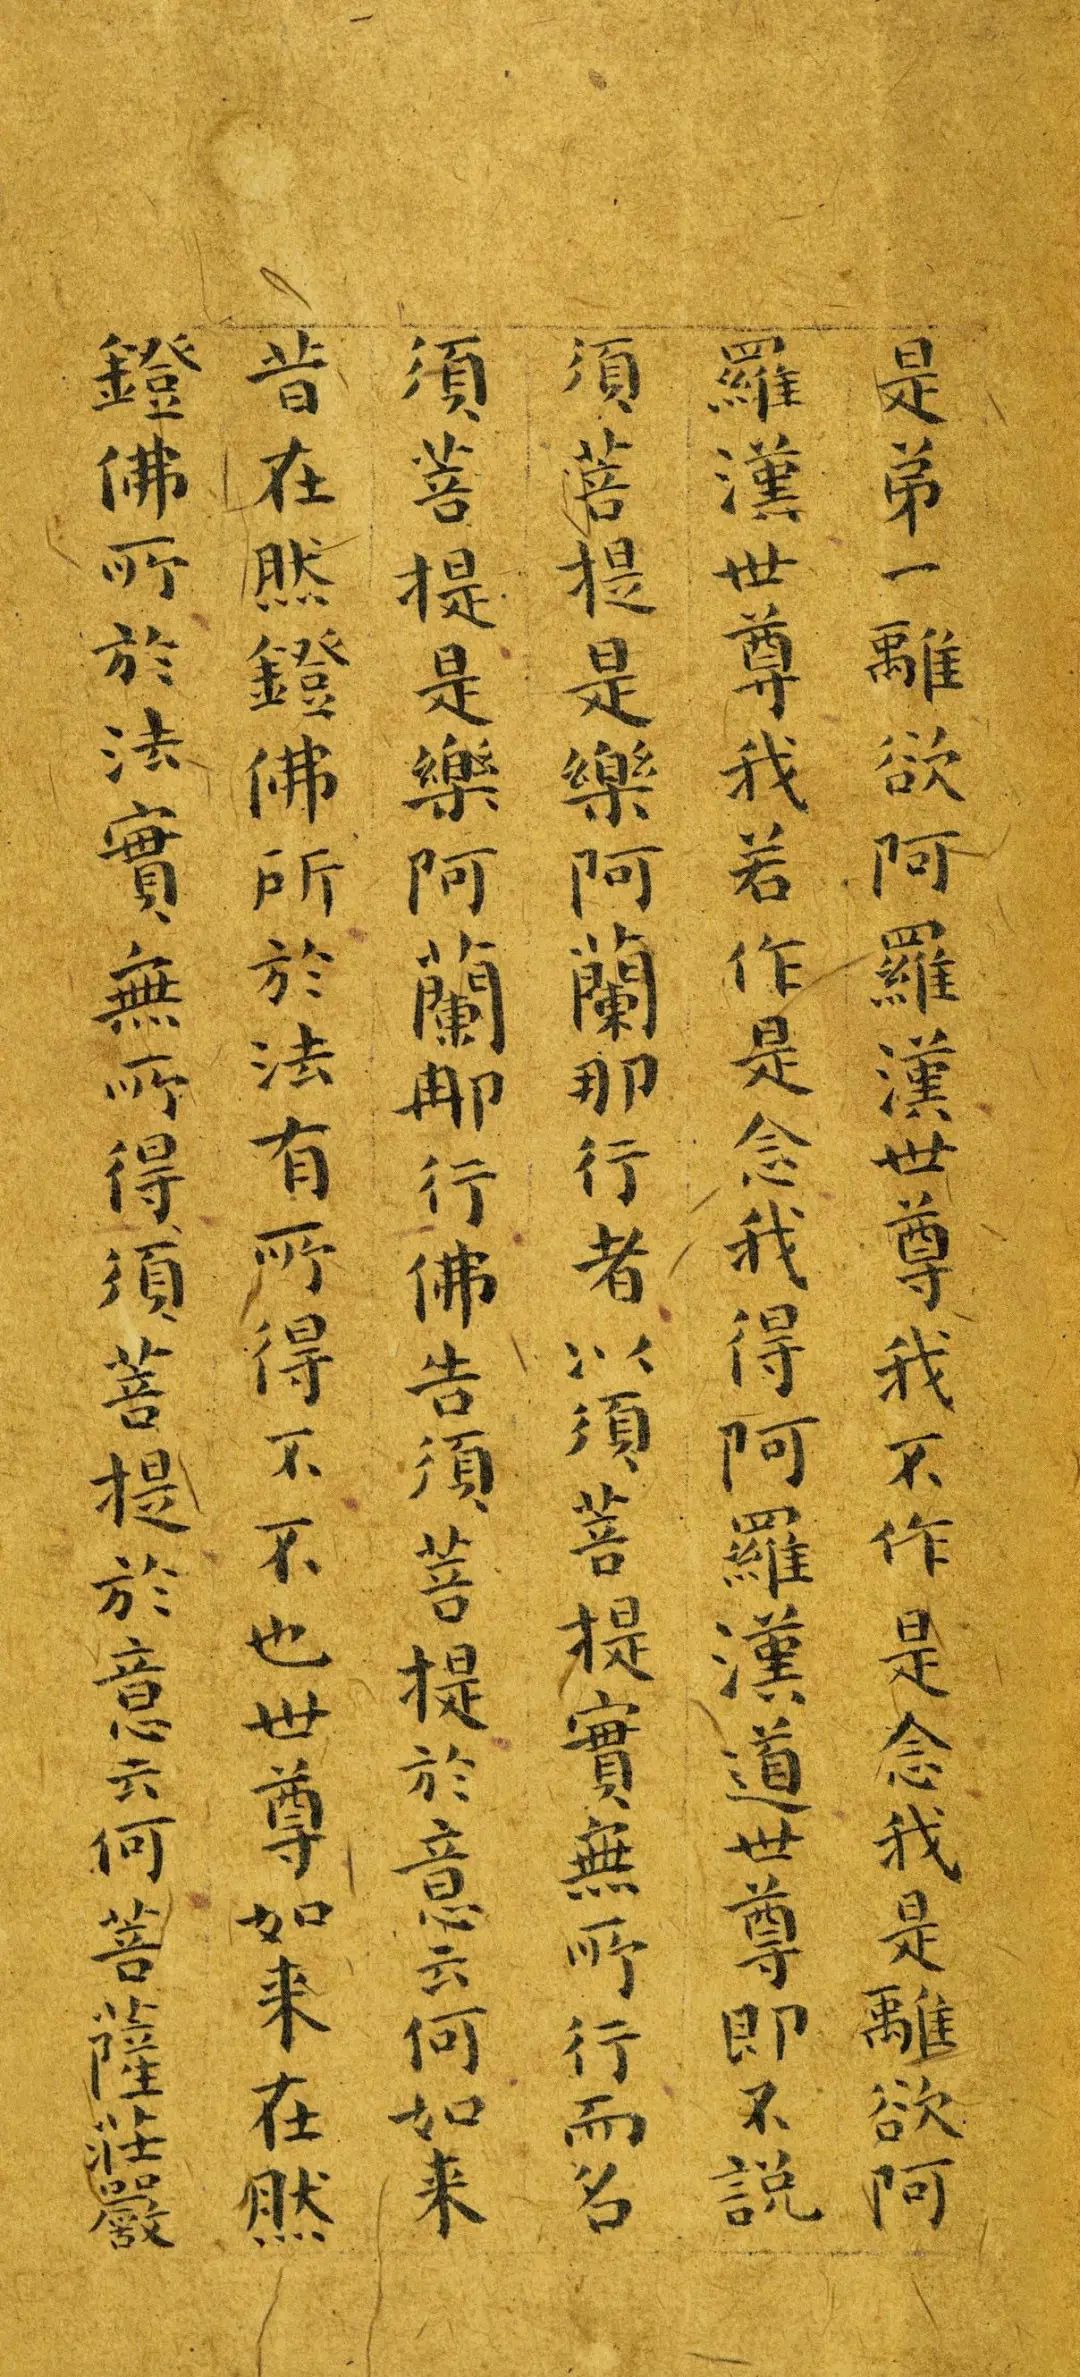 是弟一離欲阿羅漢世尊我不作是念我是離欲阿
羅漢世尊我若作是念我得阿羅漢道世尊即不説
須菩提是樂阿蘭那行者以須菩提實無所行而名
須菩提是樂阿蘭那行佛告須菩提於意云何如来
昔在然鐙佛所於法有所得不不也世尊如来在然
鐙佛所於法實無所得須菩提於意云何菩薩莊嚴